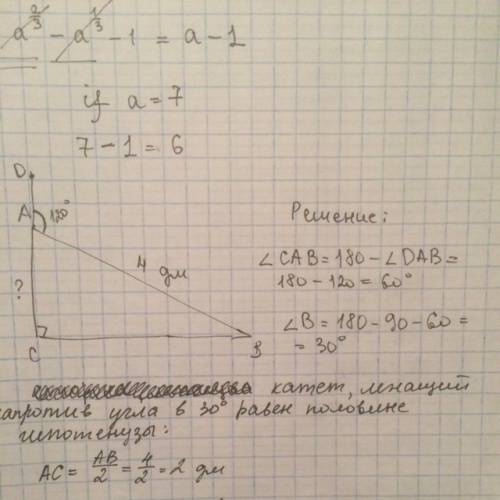 a^{2/3} - a^{1/3} - 1 = a - 1
if a = 7
7 - 1 = 6
D
A 120°
4 дм
?
C
B
Решение:
∠CAB = 180 - ∠DAB =
180 - 120 = 60°
∠B = 180 - 90 - 60 =
= 30°
катет, лежащий
напротив угла в 30° равен половине
гипотенузы:
AC = AB/2 = 4/2 = 2 дм